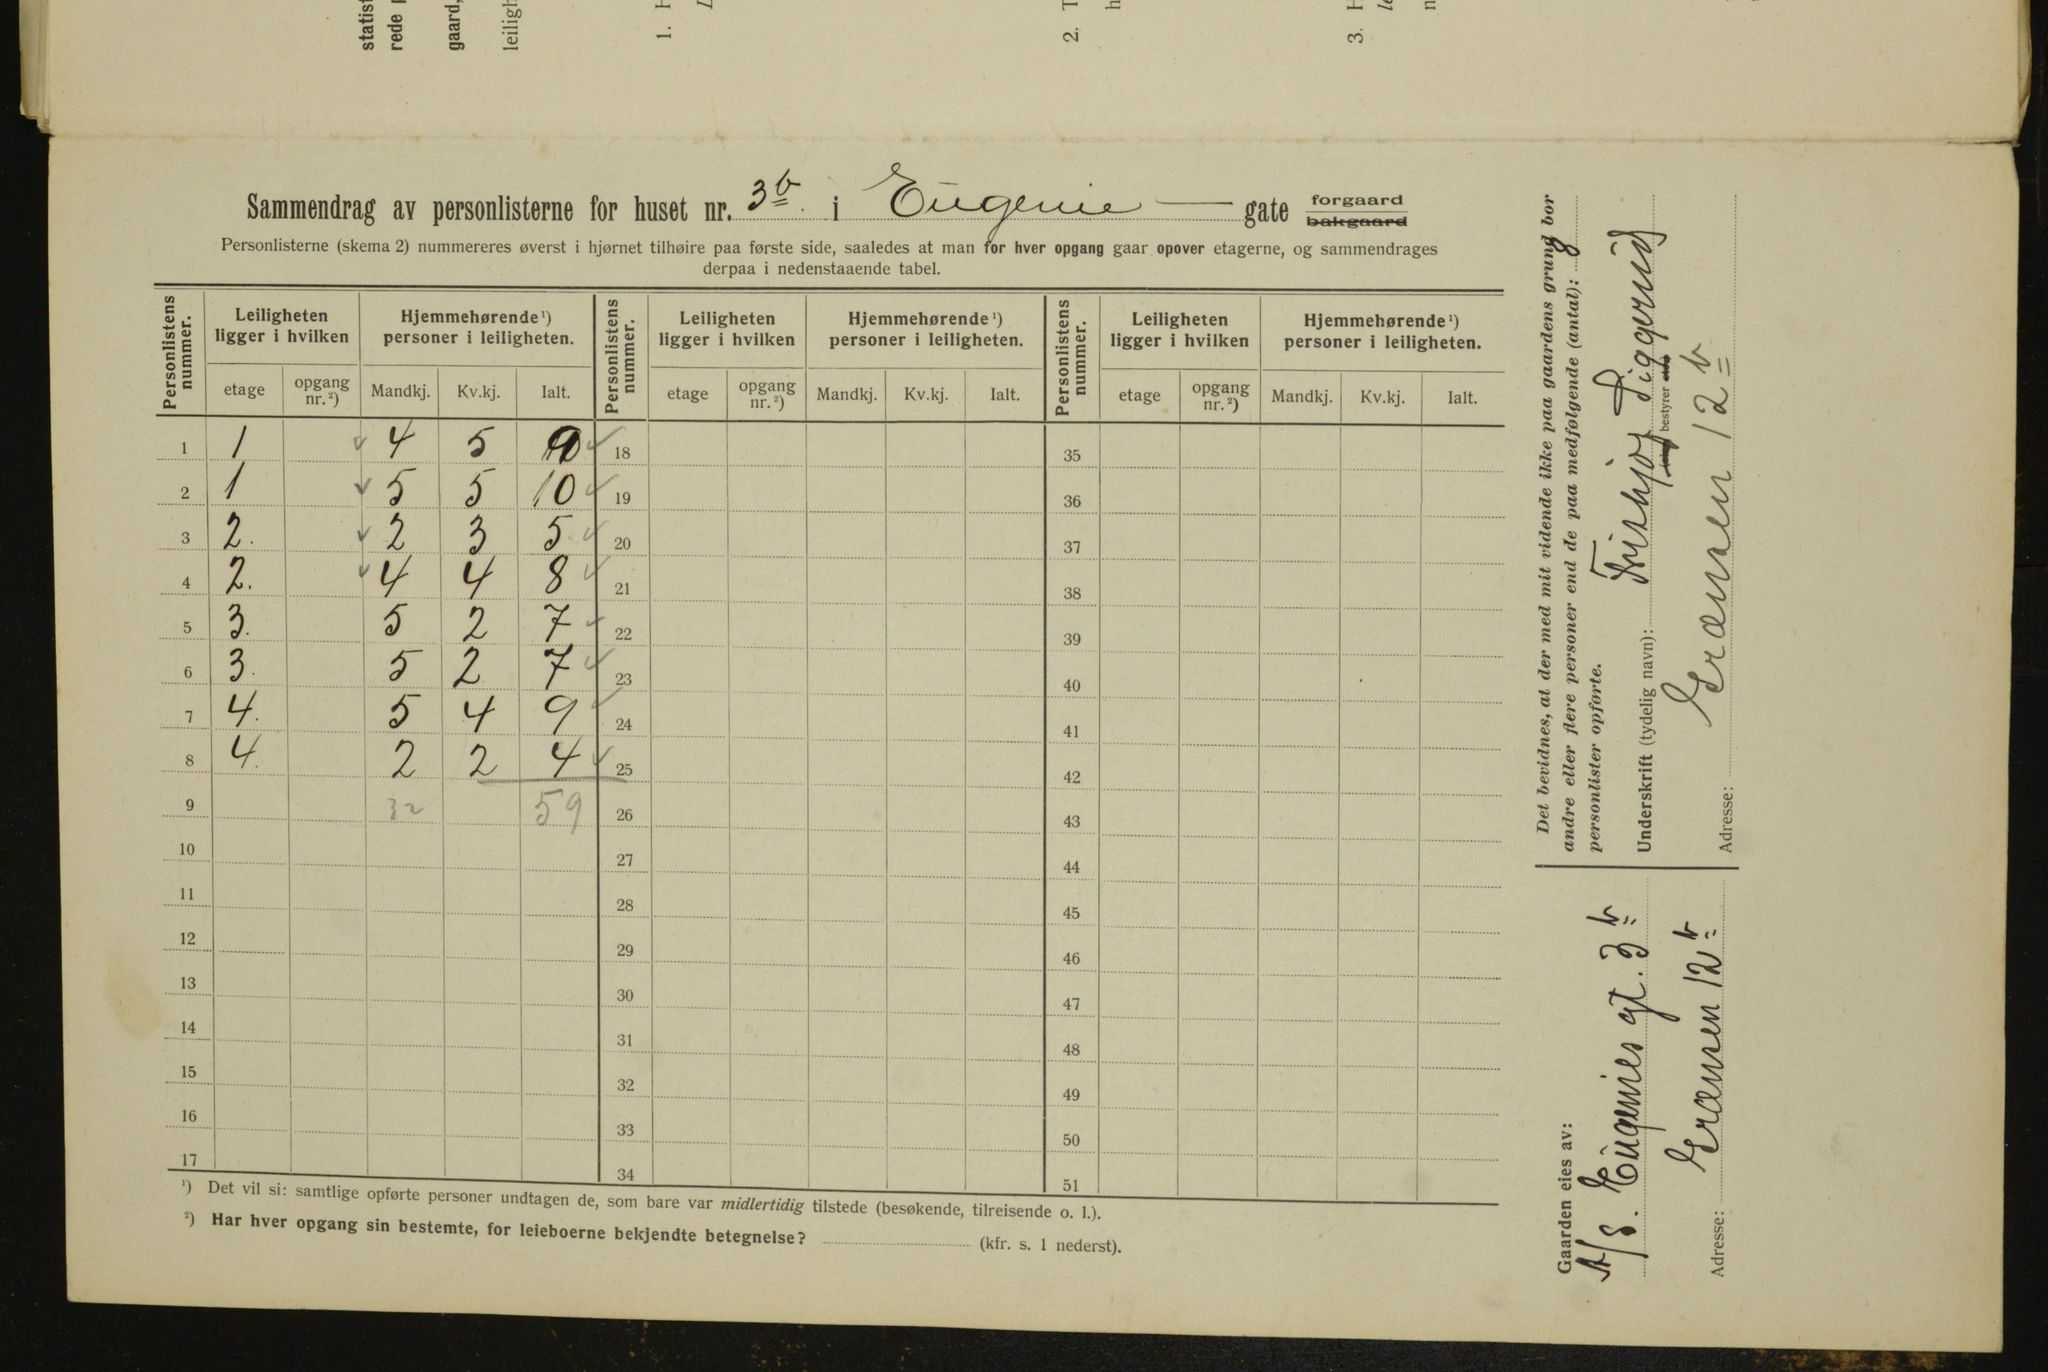 statist
rede p
gaard,
leiligh
1. H
L
2. T
h
3. H
le
n
Sammendrag av personlisterne for huset nr. 3b i Eugenie — gate forgaard bakgaard
Personlisterne (skema 2) nummereres øverst i hjørnet tilhøire paa første side, saaledes at man for hver opgang gaar opover etagerne, og sammendrages
derpaa i nedenstaaende tabel.
Personlistens nummer. Leiligheten ligger i hvilken Hjemmehørende ¹) personer i leiligheten. Personlistens nummer. Leiligheten ligger i hvilken Hjemmehørende ¹) personer i leiligheten. Personlistens nummer. Leiligheten ligger i hvilken Hjemmehørende ¹) personer i leiligheten.
etage opgang nr. ²) Mandkj. Kv.kj. Ialt. etage opgang nr. ²) Mandkj. Kv.kj. Ialt. etage opgang nr. ²) Mandkj. Kv.kj. Ialt.
1 1 4 5 9 18 35
2 1 5 5 10 19 36
3 2. 2 3 5 20 37
4 2. 4 4 8 21 38
5 3. 5 2 7 22 39
6 3. 5 2 7 23 40
7 4. 5 4 9 24 41
8 4. 2 2 4 25 42
9 32 59 26 43
10 27 44
11 28 45
12 29 46
13 30 47
14 31 48
15 32 49
16 33 50
17 34 51
¹) Det vil si: samtlige opførte personer undtagen de, som bare var midlertidig tilstede (besøkende, tilreisende o. l.).
²) Har hver opgang sin bestemte, for leieboerne bekjendte betegnelse? (kfr. s. 1 nederst).
Det bevidnes, at der med mit vidende ikke paa gaardens grund bor
andre eller flere personer end de paa medfølgende (antal): 8
personlister opførte.
Underskrift (tydelig navn): Frithjof Diggerud
bestyrer
Adresse: Grænsen 12b
Gaarden eies av:
A/S. Eugenies gt. 3b
Adresse: Grænsen 12b